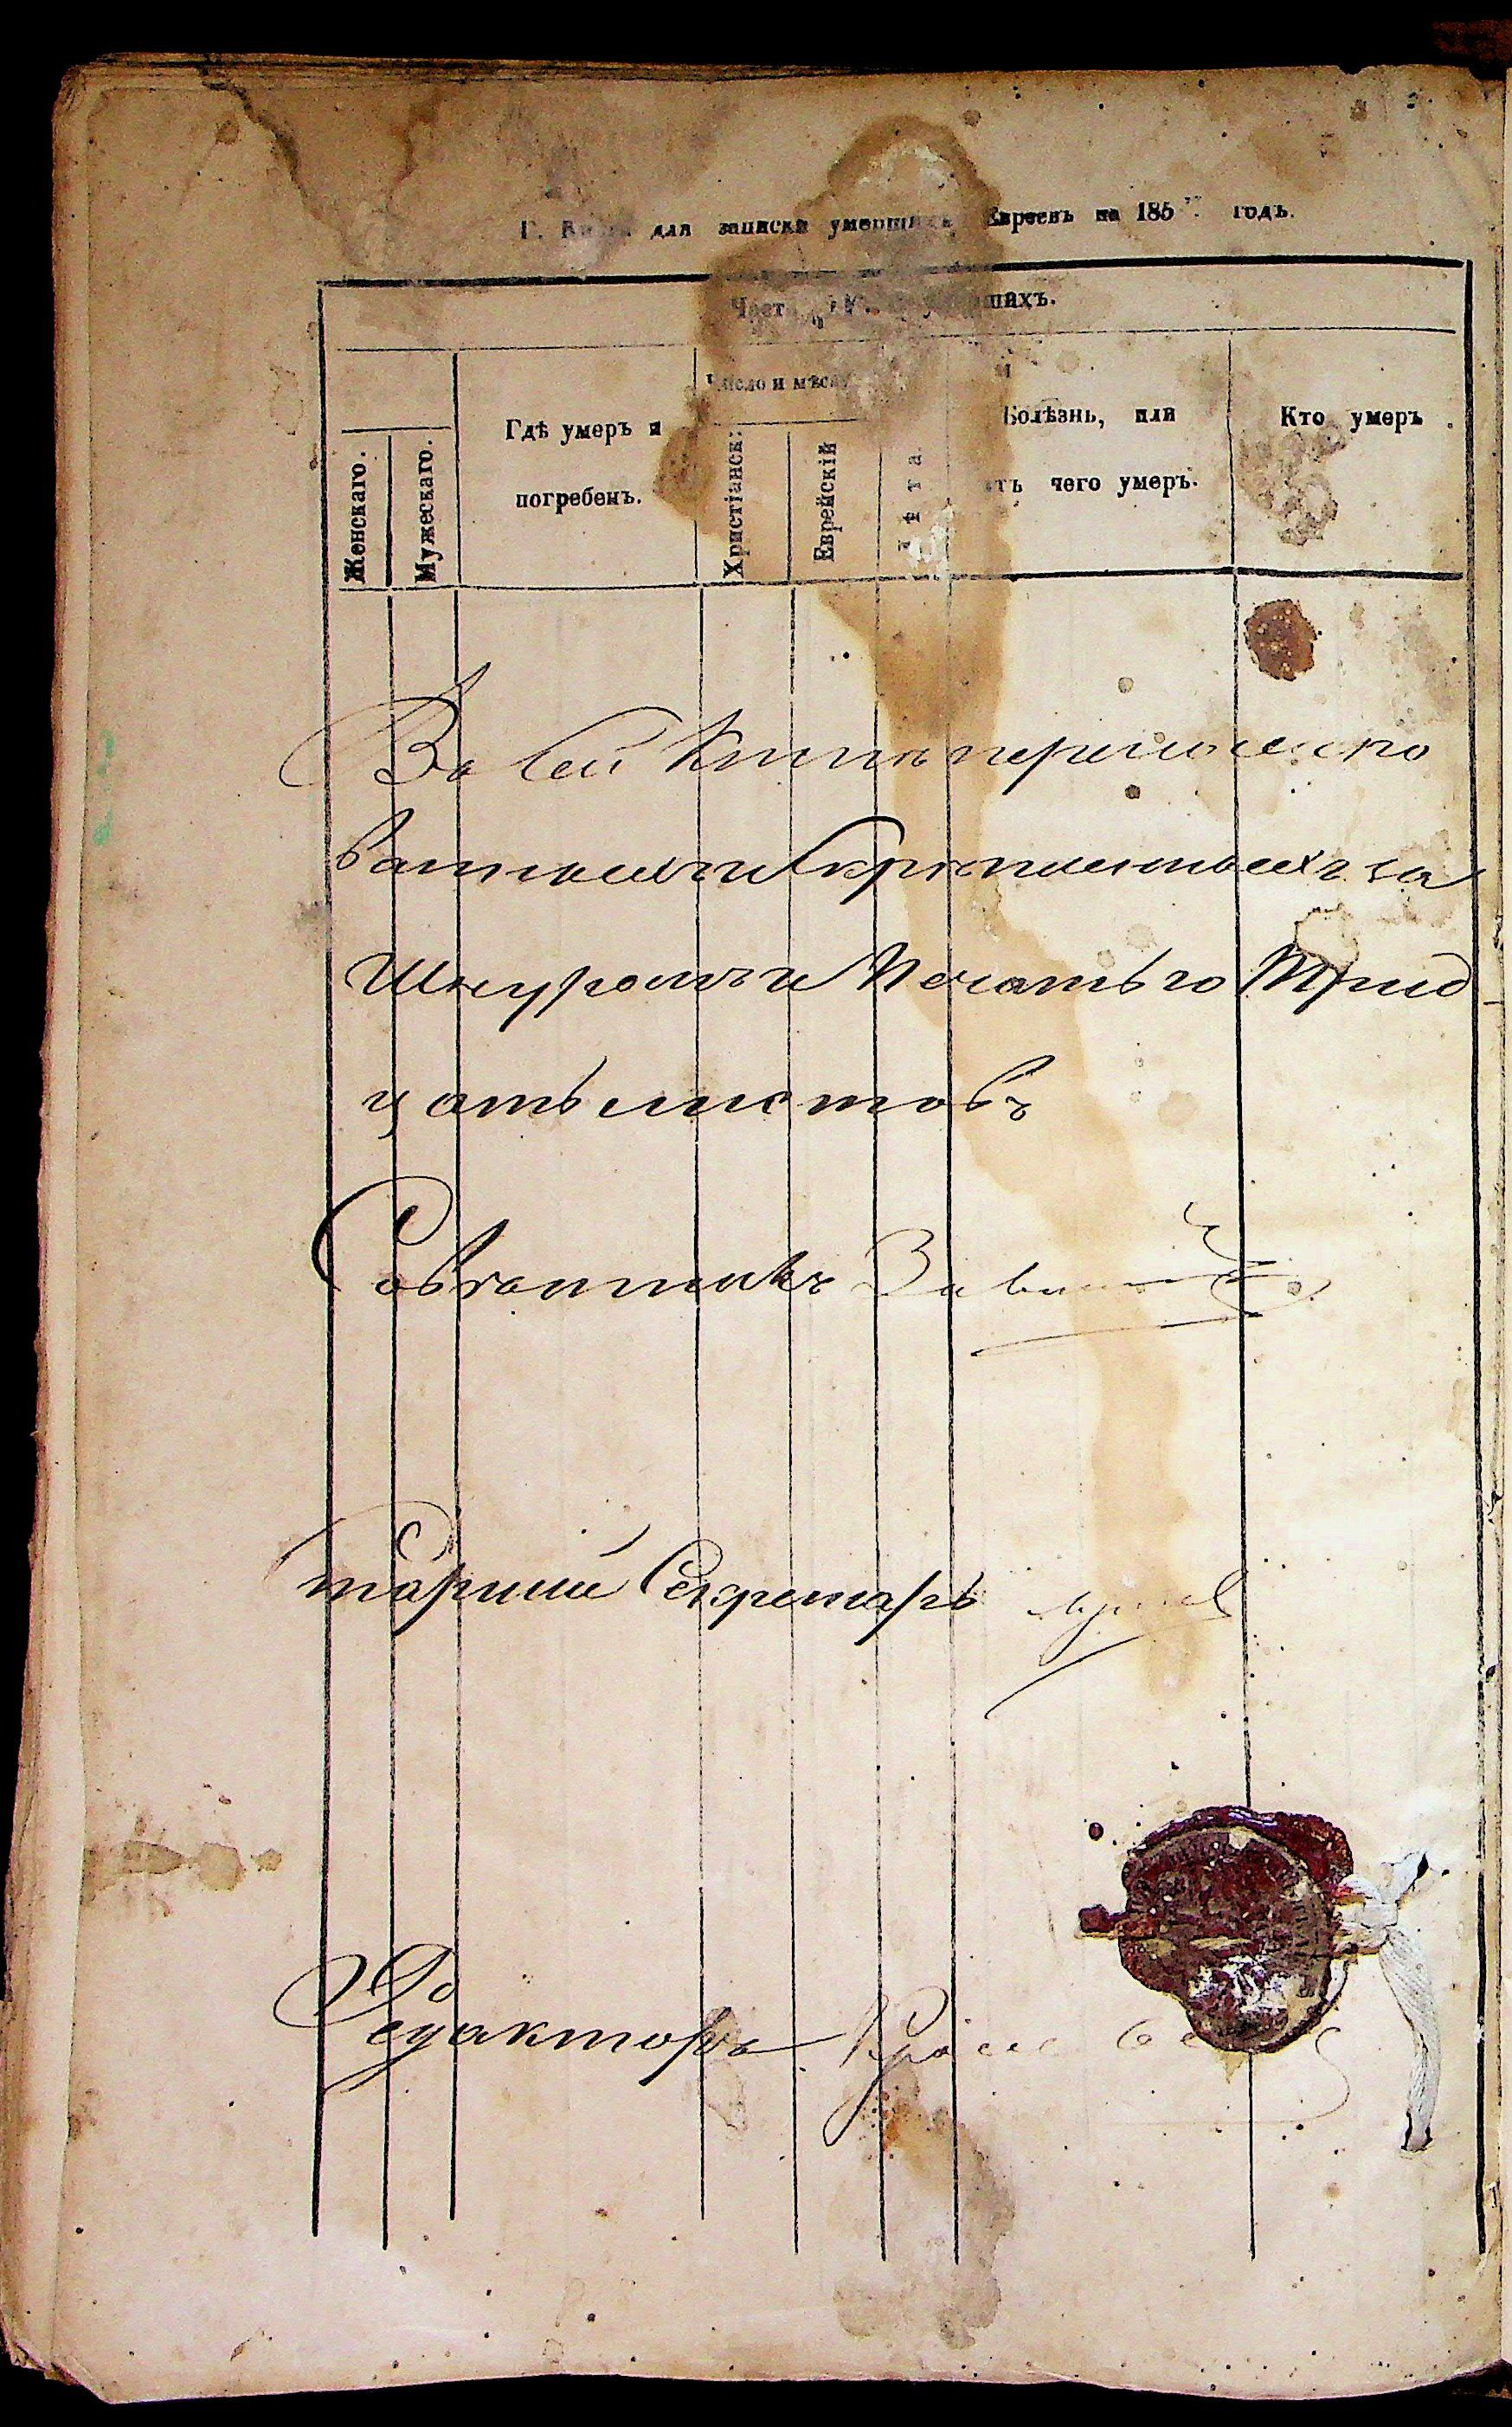 для записки Евреевъ на 185 годъ.
Число и
Женскаго.
Мужескаго.
Гдѣ умеръ и
погребенъ.
Христіанск:
Еврейскій
Лѣта
Болѣзнь, или
отъ чего умеръ.
Кто умеръ
Въ сей Книгѣ перенумеро
ванныхъ и скрѣпленныхъ за
Шнуромъ и Печатью Трид
цать листовъ
Совѣтникъ
Старшій Секретарь
Редакторъ